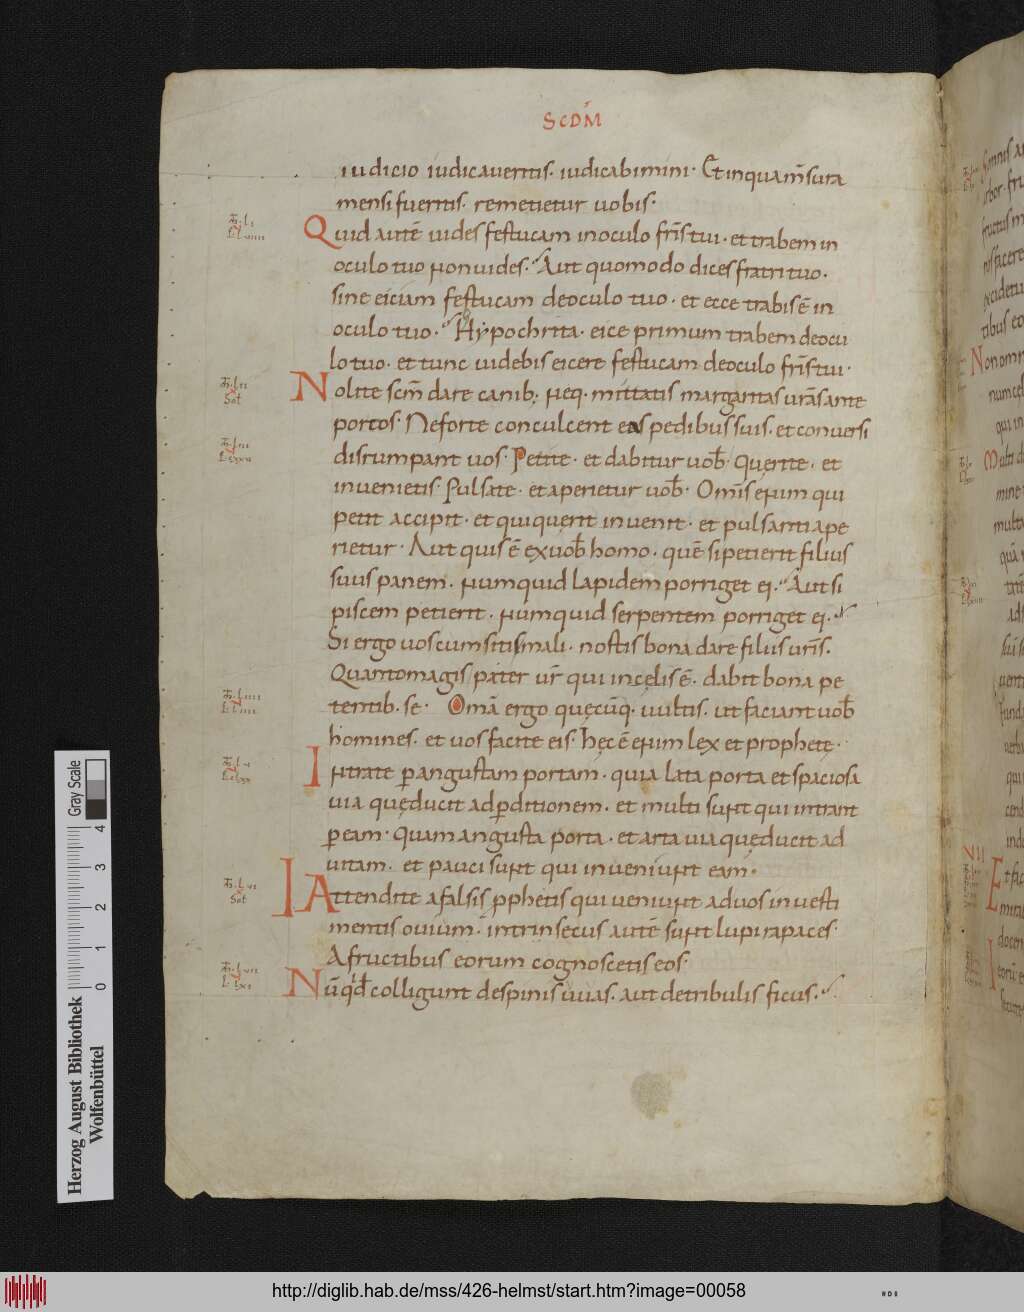 SCDM̄
iudicio iudicaveritis. iudicabimini. Et in qua m̄sura
mensi fueritis. remetietur vobis.
Quid autē vides festucam in oculo fr̄s tui. et trabem in
oculo tuo non vides. Aut quomodo dices fratri tuo.
sine eiciam festucam de oculo tuo. et ecce trabis ē in
oculo tuo. Hypochrita. eice primum trabem de ocu
lo tuo. et tunc videbis eicere festucam de oculo fr̄s tui.
Nolite scm̄ dare canib; neq. mittatis margaritas urās ante
porcos. Ne forte conculcent eas pedibus suis. et conversi
disrumpant vos. Petite. et dabitur vob̄. Quęrite. et
invenietis. Pulsate. et aperietur vob̄. Omīs enim qui
petit accipit. et qui querit invenit. et pulsanti ape
rietur. Aut quis ē ex vob̄ homo. quē si petierit filius
suus panem. numquid lapidem porriget ei. Aut si
piscem petierit. numquid serpentem porriget ei.
Si ergo vos cum sitis mali. nostis bona dare filiis ur̄is.
Quanto magis pater ur̄ qui in cęlis ē. dabit bona pe
tentib. se. Om̄a ergo quęcūq. vultis. ut faciant vob̄
homines. et vos facite eis. Hęc ē enim lex et prophetę.
Intrate p̄ angustam portam. quia lata porta et spaciosa
via quę ducit ad p̄ditionem. et multi sunt qui intrant
p̄ eam. Quam angusta porta. et arta via quę ducit ad
vitam. et pauci sunt qui inveniunt eam.
Attendite a falsis pphetis qui veniunt ad vos in vesti
mentis ovium. intrinsecus autē sunt lupi rapaces.
A fructibus eorum cognoscetis eos.
Nūqd̄ colligunt de spinis uvas. aut de tribulis ficus.
Gray Scale
4
3
2
1
0
Herzog August Bibliothek
Wolfenbüttel
http://diglib.hab.de/mss/426-helmst/start.htm?image=00058